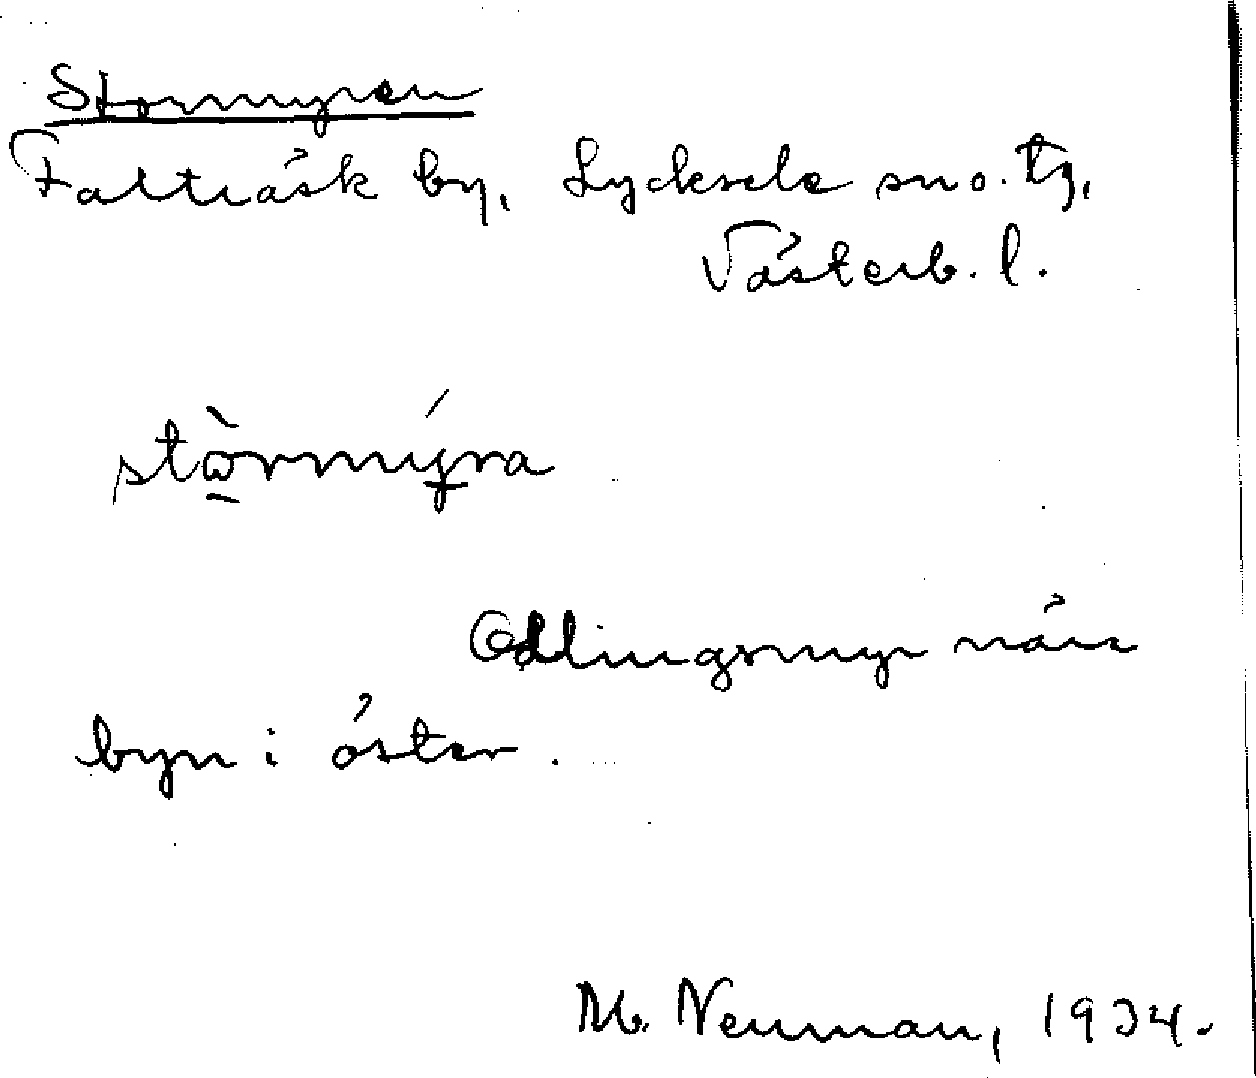 Stormyren
Falträsk by, Lycksele sn o. tg,
Västerb. l.
stòrmýra
Odlingsmyr nära
byn i öster.
M. Neuman, 1934.